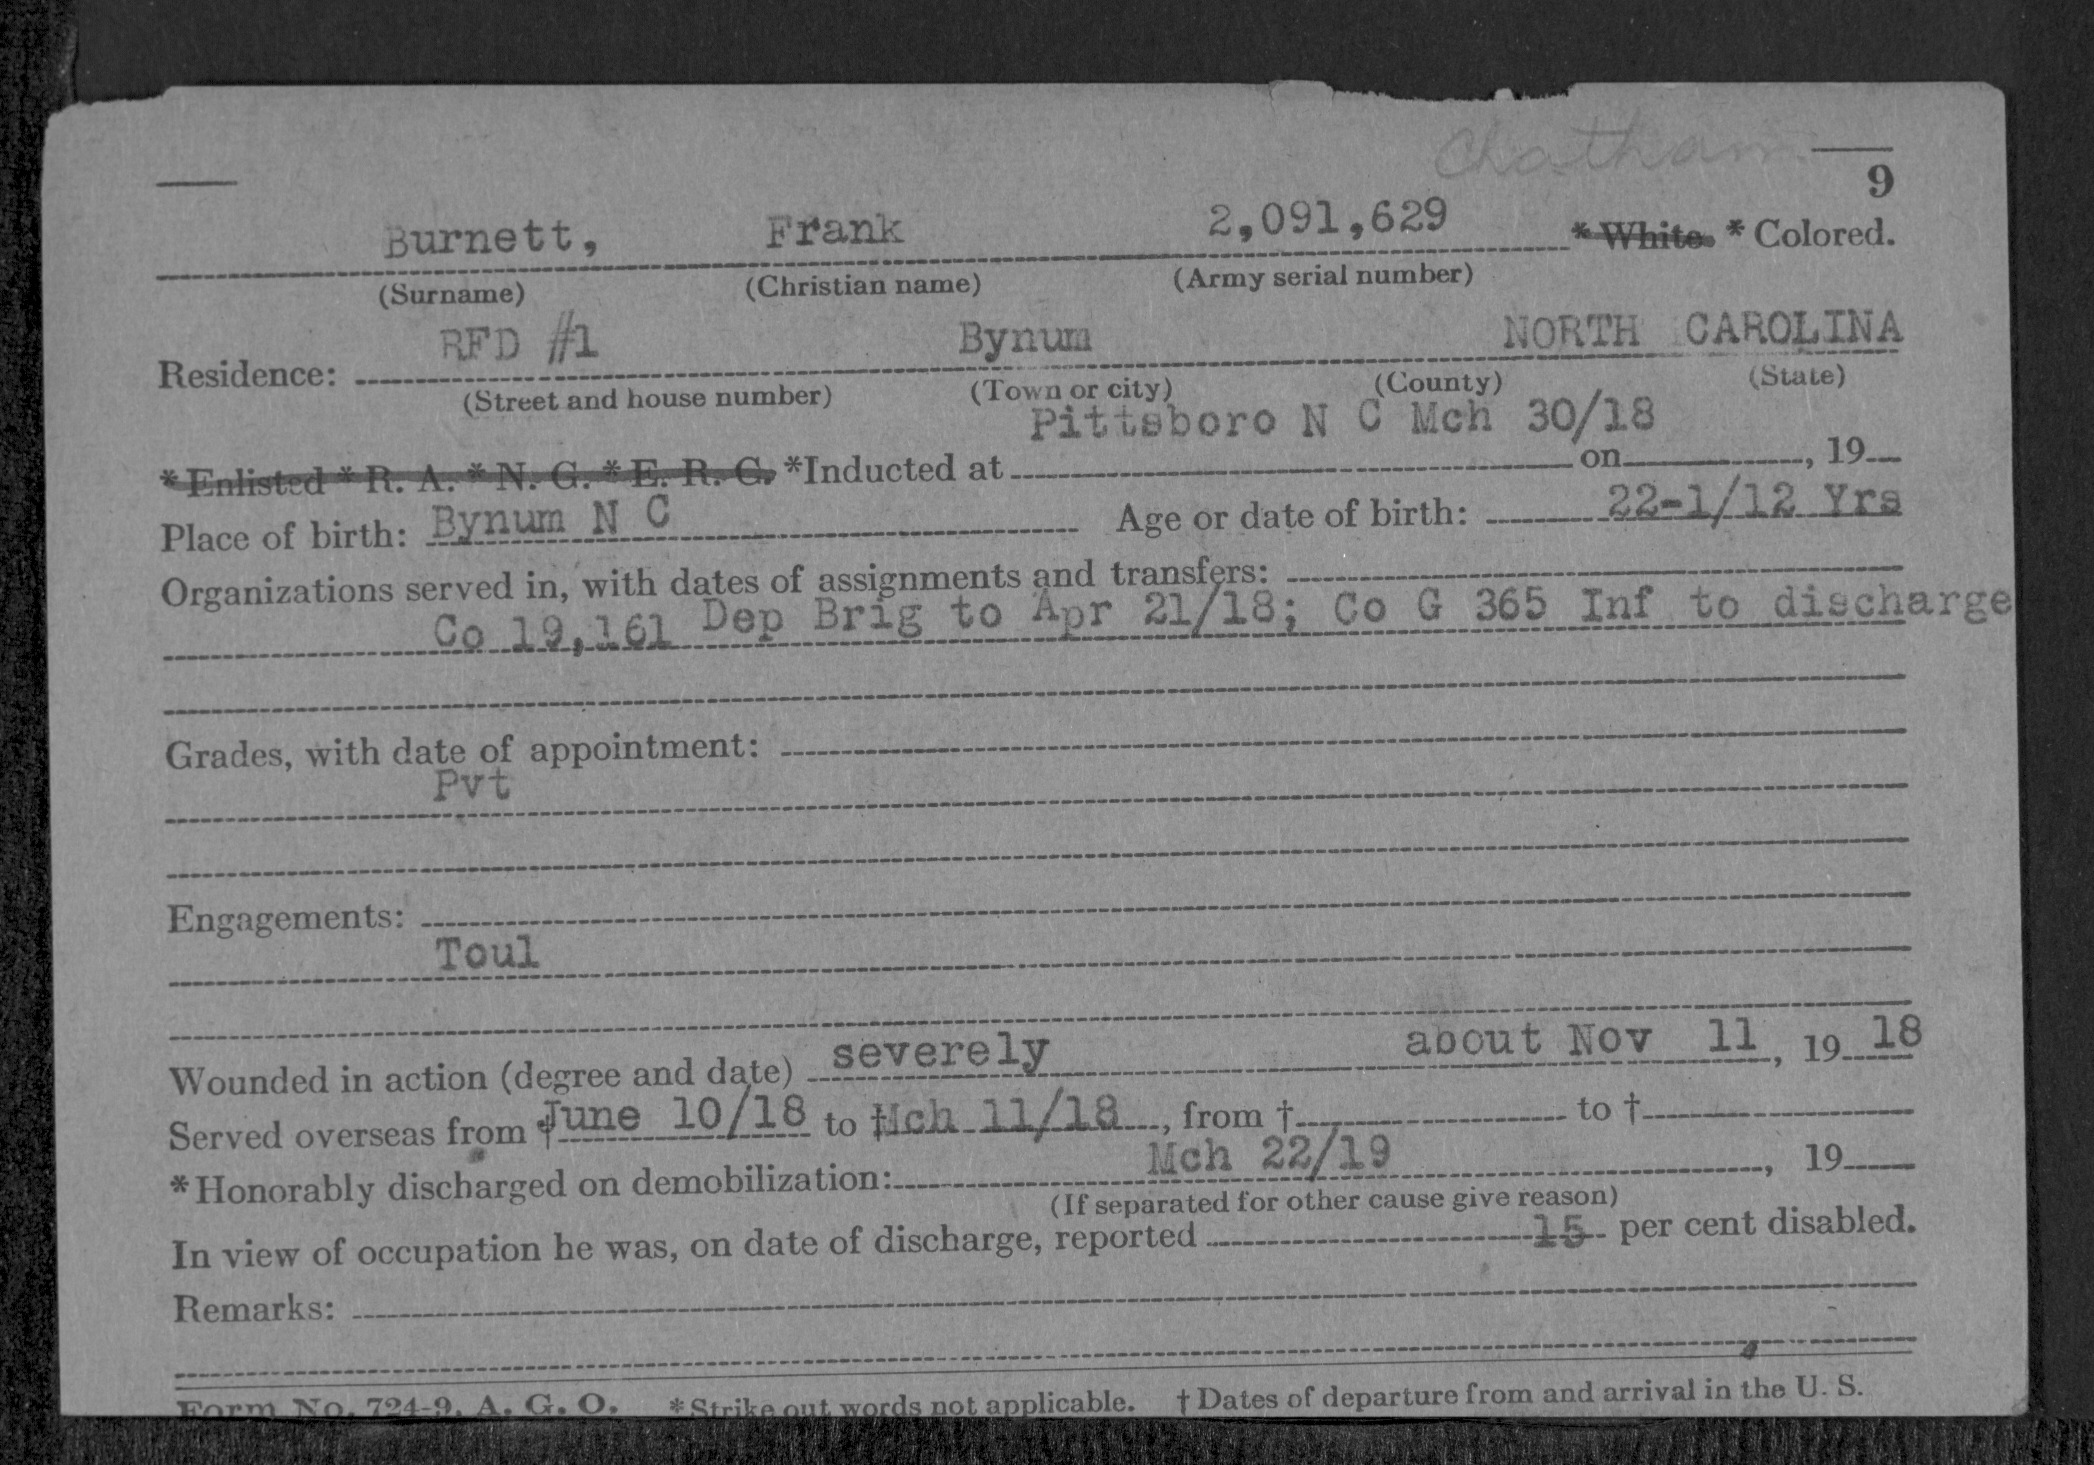 Chatham
9
Burnett, Frank 2,091,629 * White. * Colored.
(Surname) (Christian name) (Army serial number)
Residence: RFD #1 Bynum NORTH CAROLINA
(Street and house number) (Town or city) (County) (State)
Pittsboro N C Mch 30/18
*Enlisted * R. A. * N. G. * E. R. C. *Inducted at on , 19
Place of birth: Bynum N C Age or date of birth: 22-1/12 Yrs
Organizations served in, with dates of assignments and transfers:
Co 19,161 Dep Brig to Apr 21/18; Co G 365 Inf to discharge
Grades, with date of appointment:
Pvt
Engagements:
Toul
Wounded in action (degree and date) severely about Nov 11, 19 18
Served overseas from † June 10/18 to † Mch 11/18, from † to †
*Honorably discharged on demobilization: Mch 22/19 , 19
(If separated for other cause give reason)
In view of occupation he was, on date of discharge, reported 15 per cent disabled.
Remarks:
Form No. 724-9, A. G. O. *Strike out words not applicable. † Dates of departure from and arrival in the U. S.